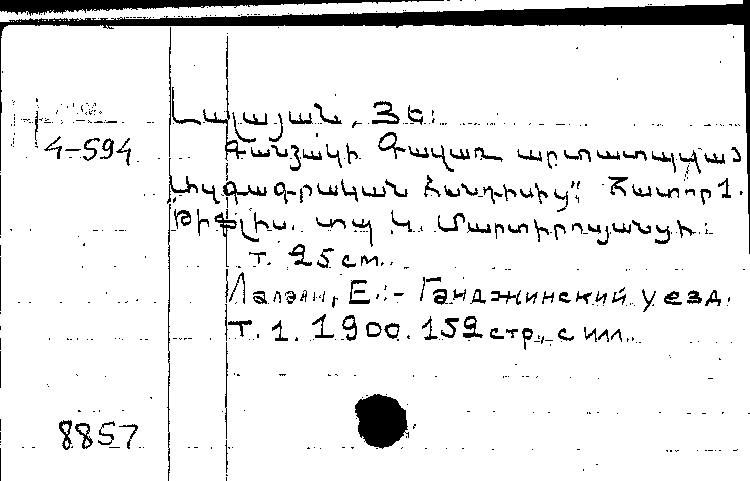 Լալայան, Յե.
4-594
Գանձակի Գավառ արտատպված
Ազգագրական Հանդիսից". Հատոր 1.
Թիֆլիս. տպ. Կ. Մարտիրոսյանցի.
т. 25 см..
Лалаян, Е.:- Ганджинский уезд.
Т. 1. 1900. 159 стр., с илл..
8857